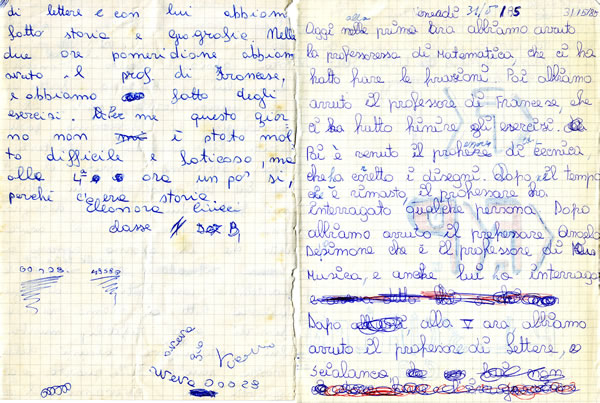 di lettere e con lui abbiamo
fatto storia e giografia. Nelle
due ore pomeridiane abbiam
avuto il prof. di Francese,
e abbiamo fatto degli
esercisi. Per me questo gior
no non è stato mol
to difficile e faticoso, ma
alla 4ª ora un po' si,
perchè c'era storia
Eleonora
classe B
00028
wewe 00028
31/5/85 31/5/85
alla
Oggi nella prima ora abbiamo avuto
la professoressa di Matematica, che ci ha
fatto fare le frazioni. Poi abbiamo
avuto il professore di Francese, che
ci ha fatto finire gli esercisi.
Poi è venuto il professore di tecnica
che ha coretto i disegni. Dopo il tempo
che è rimasto il professore ha
interrogato qualche persona Dopo
abbiamo avuto il professore Angelo
Desimone che è il professore di
Musica, e anche lui ha interrogat
Dopo, alla V ora, abbiamo
avuto il professore di lettere,
Scialanca